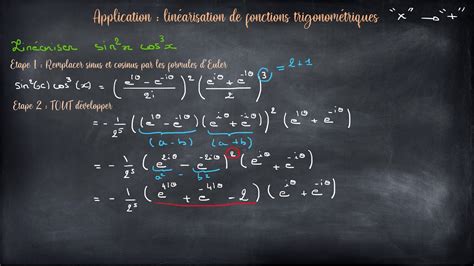 Application : linéarisation de fonctions trigonométriques "x" → "+"
Linéariser sin²x cos³x
Etape 1 : Remplacer sinus et cosinus par les formules d'Euler
sin²(x) cos³(x) = ((e^{iθ} - e^{-iθ})/2i)² ((e^{iθ} + e^{-iθ})/2)³ = 2+1
Etape 2 : TOUT développer
= - 1/2⁵ ((e^{iθ} - e^{-iθ})(e^{iθ} + e^{-iθ}))² (e^{iθ} + e^{-iθ})
(a-b) (a+b)
= - 1/2⁵ (e^{2iθ} - e^{-2iθ})² (e^{iθ} + e^{-iθ})
a² - b²
= - 1/2⁵ (e^{4iθ} + e^{-4iθ} - 2) (e^{iθ} + e^{-iθ})